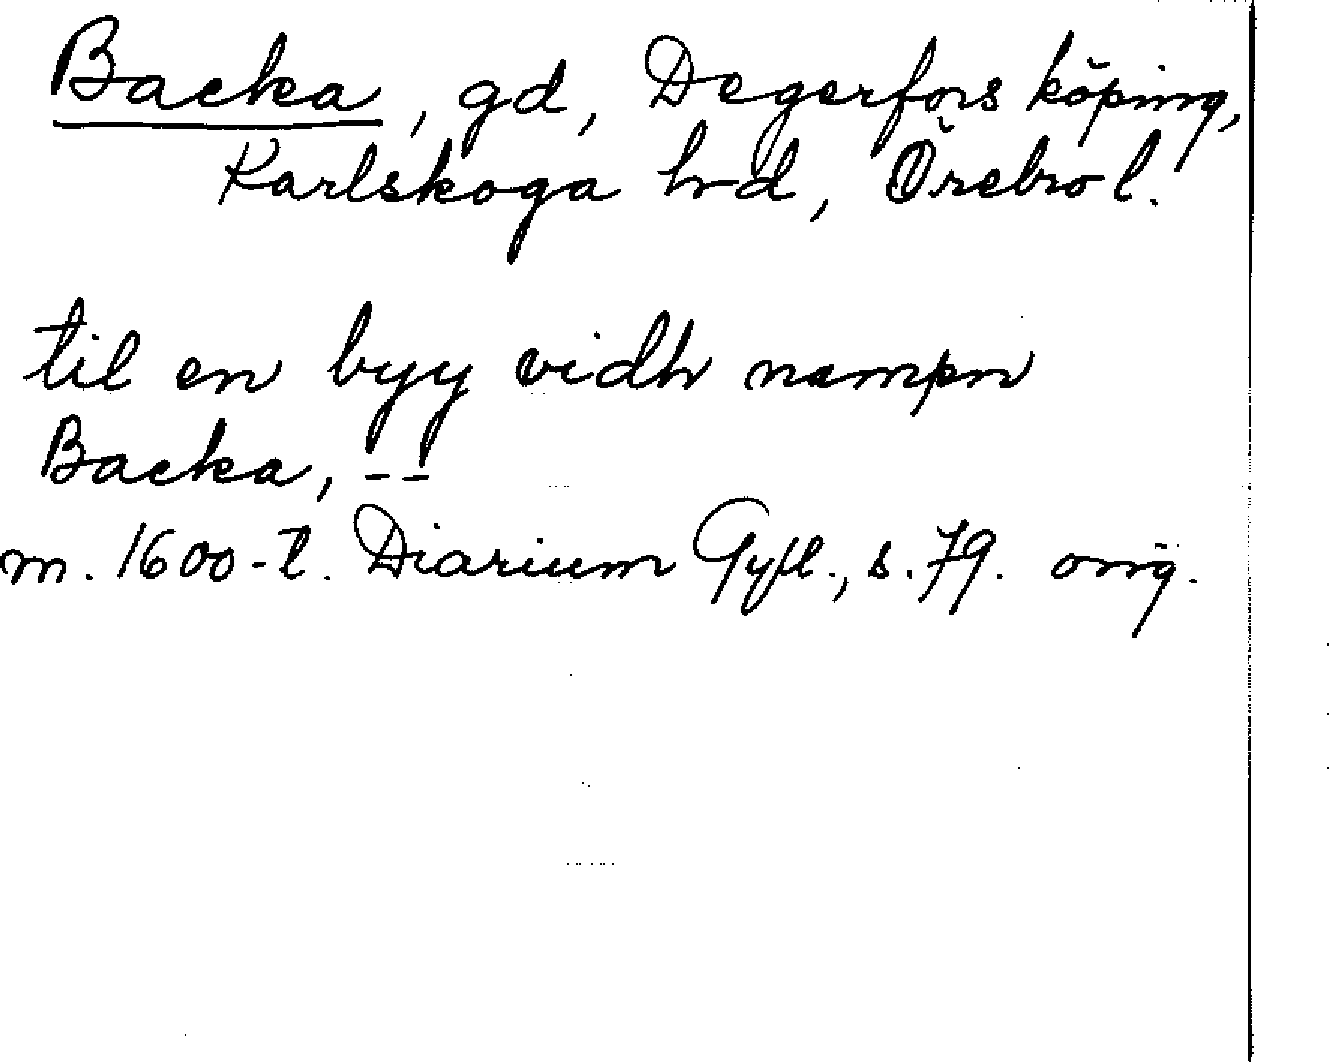 Backa, gd, Degerfors köping,
Karlskoga hrd, Örebro l.
til en byy vidh nampn
Backa, --
m. 1600-t. Diarium Gyll., s. 79. orig.